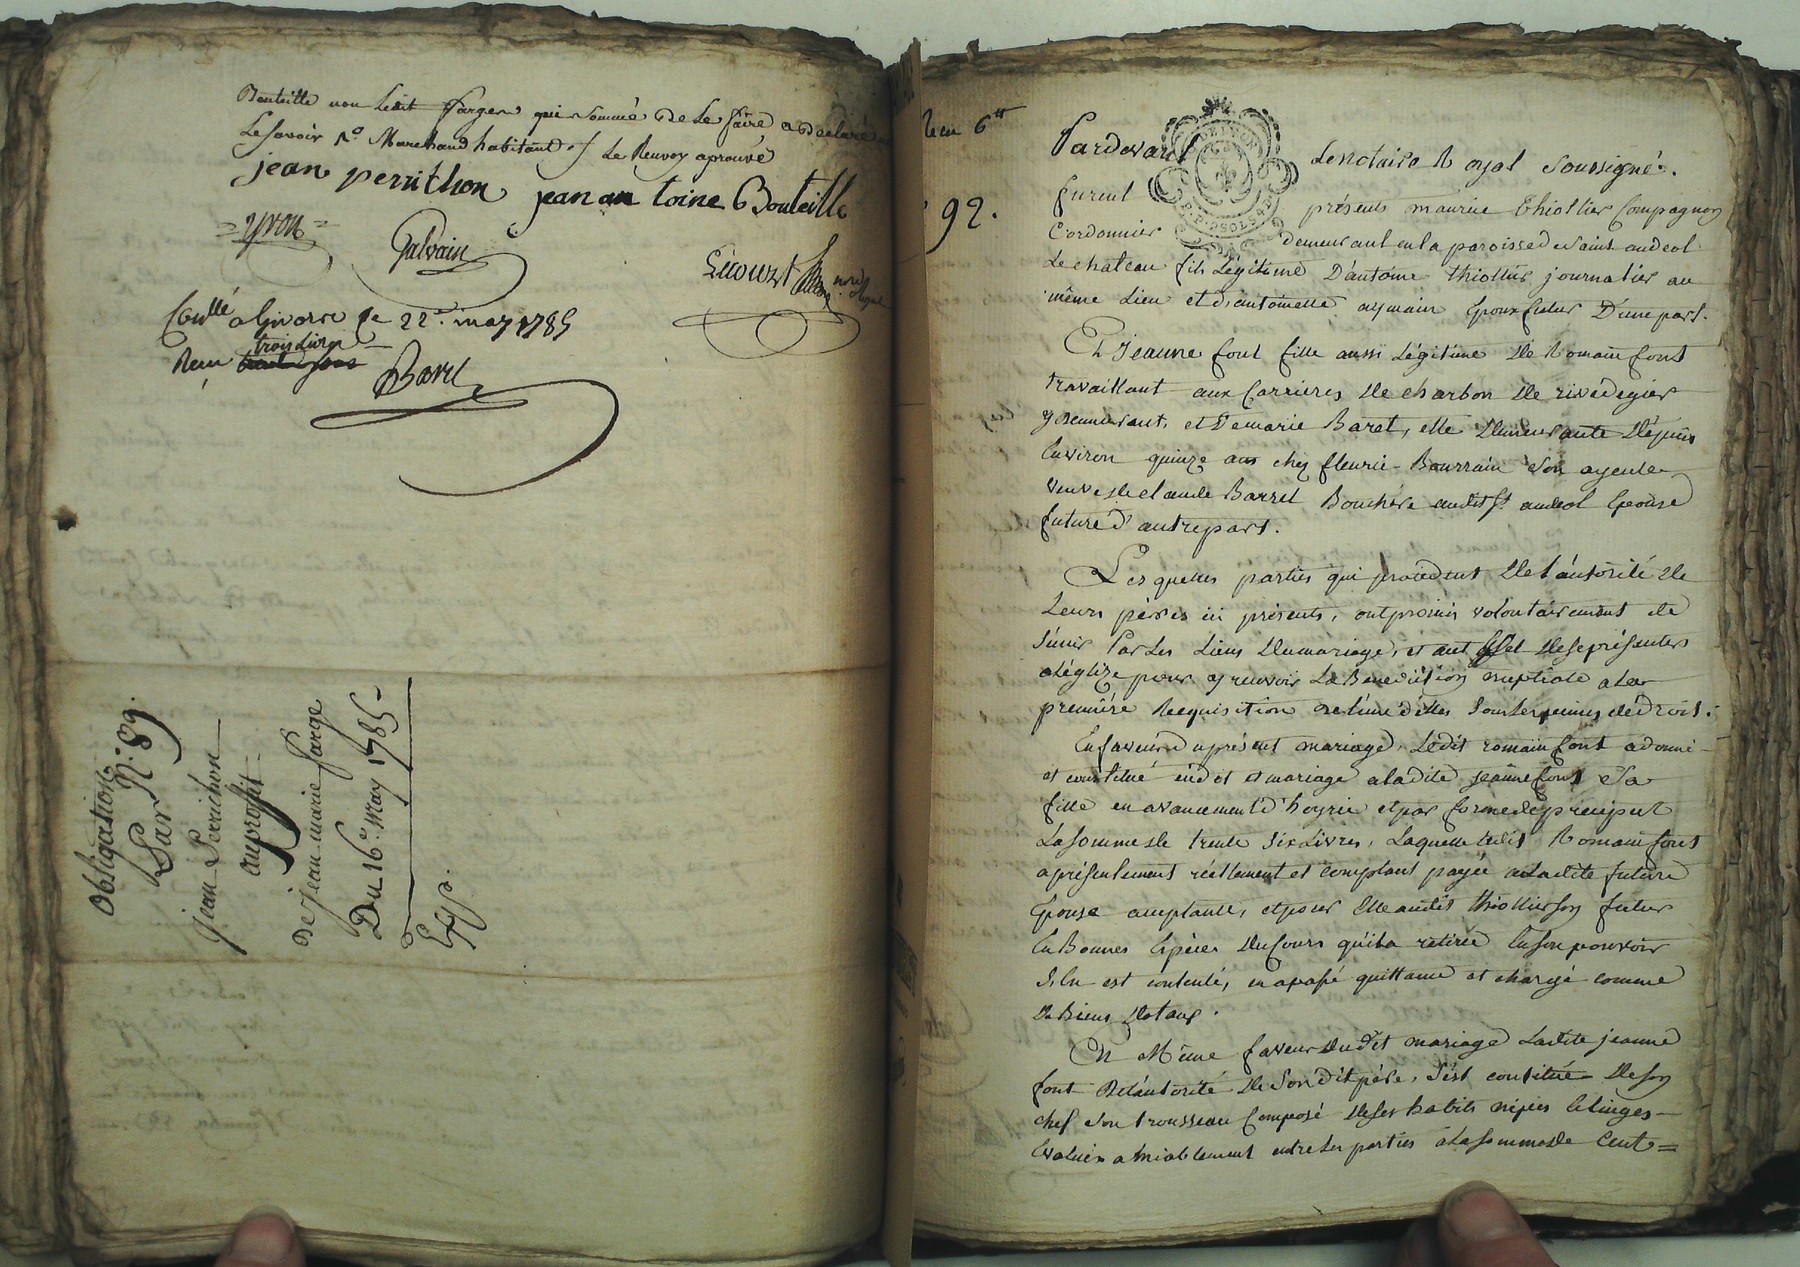 Bouteille non Ledit farge qui sommé de Le faire a declaré ne
Le savoir 1.º Marchand habitant ./ Le Renvoy aprouvé
jean perrichon jean an toine Bouteille
= yvon =
Galvain
Lecourt
nore Royal
Con.llé a Givors Le 22.e may 1785
trois livres
Recu
Bavet
Obligation N.º 89.
Par
jean Perrichon
au profit
De jean marie farge
Du 16.e May 1785
Exp.
Recu 6tt
92.
Pardevant Le notaire Royal Soussigné.
furent présents maurice Thiollier Compagnon
Cordonnier demeurant en la paroisse de saint andeol
Le chateau fils Légitime D'antoine Thiollier journalier au
même Lieu et d'antoinette aymain Epoux futur D'une part.
Et Jeanne font fille aussi Légitime De Romain font
travaillant aux Carrieres De charbon De rivedegier
y demeurant, et De marie Baret, elle Demeurante Dépuis
Environ quinze ans chez fleurie Bourrain son ayeule
veuve de claude Barret Bouchére audit St andeol Epouse
future D'autre part.
Les quelles parties qui procedent De L'autorité De
Leurs péres ici présents, ont promis volontairement de
s'unir Par Les Liens Du mariage, et a cet effet De se présenter
a L'églize pour y recevoir La Benediction nuptiale a La
première Requisition De L'une d'elles sous les peines de Droit.
En faveur du présent mariage, Ledit romain font a donné
et constitué en dot et mariage a Ladite jeanne font sa
fille en avancement D'hoyrie et par forme de préciput
La somme de trente six Livres, Laquelle Ledit Romain font
a présentement réellement et comptant payée a Ladite future
Epouse acceptante, et pour Elle audit thiollier son futur
En Bonnes Espéces Du Cours qu'il a retirée En son pouvoir
s'En est contenté, en a passé quittance et chargé comme
De Biens Dotaux.
En Même faveur Dudit mariage Ladite jeanne
font De L'autorité De Son dit pére, s'est constitué De son
chef son trousseau Composé De ses habits nipes et Linges
Evalués amiablement entre Les parties a La somme de Cent =